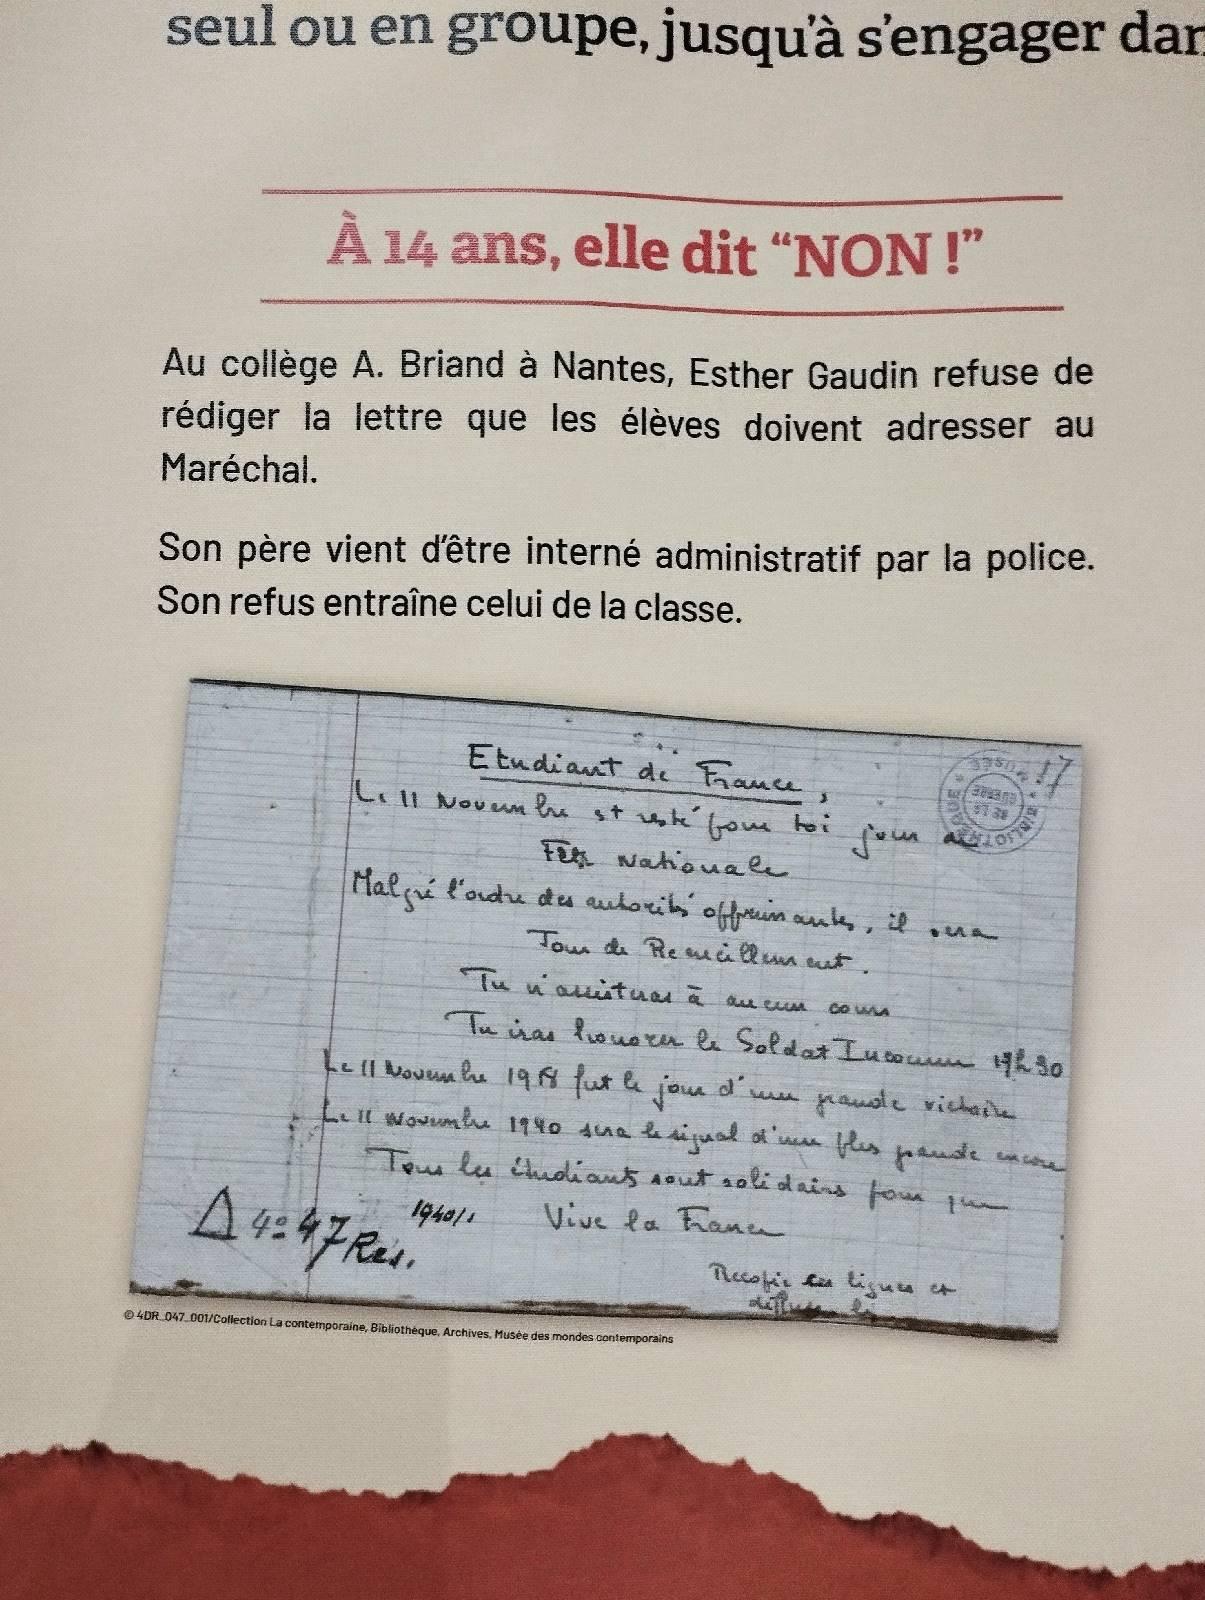 seul ou en groupe, jusqu'à s'engager dan
À 14 ans, elle dit “NON !”
Au collège A. Briand à Nantes, Esther Gaudin refuse de
rédiger la lettre que les élèves doivent adresser au
Maréchal.
Son père vient d'être interné administratif par la police.
Son refus entraîne celui de la classe.
Etudiant de France,
Le 11 Novembre est resté pour toi jour de
Fête Nationale
Malgré l'ordre des autorités opprimantes, il sera
Jour de Recueillement.
Tu n'assisteras à aucun cours
Tu iras honorer le Soldat Inconnu 17h30
Le 11 Novembre 1918 fut le jour d'une grande victoire
Le 11 Novembre 1940 sera le signal d'une plus grande encore
Tous les étudiants sont solidaires pour que
Vive la France
1940/1
Δ 4º 47 Rés.
Recopie ces lignes et
diffuse les
MUSEE
BIBLIOTHEQUE
© 4DR_047_001/Collection La contemporaine, Bibliothèque, Archives, Musée des mondes contemporains